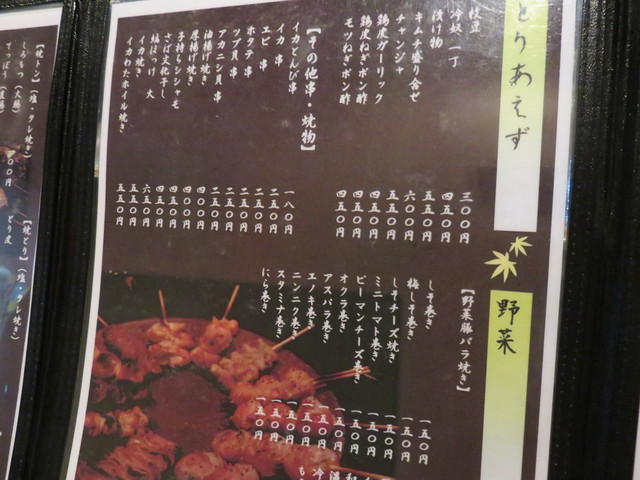 とりあえず
枝豆 三〇〇円
冷奴 一丁 四五〇円
漬け物 五五〇円
キムチ盛り合せ 六〇〇円
チャンジャ 五五〇円
鶏皮ガーリック 四五〇円
鶏皮ねぎポン酢 四五〇円
モツねぎポン酢 四五〇円
【その他串・焼物】
イカとんび串 一八〇円
イカ 串 二五〇円
エビ 串 二五〇円
ホタテ串 二五〇円
ツブ貝串 二五〇円
アカニシ貝串 二五〇円
油揚げ焼き 四〇〇円
厚揚げ焼き 四〇〇円
子持ちシシャモ 四五〇円
さば文化干し 四五〇円
塩ほっけ 大 六五〇円
イカ焼き 五五〇円
イカわたホイル焼き 五五〇円
野菜
【野菜豚バラ焼き】
しそ巻き 一五〇円
梅しそ巻き 一五〇円
しそチーズ焼き 一五〇円
ミニトマト巻き 一五〇円
ピーマンチーズ巻き 一五〇円
オクラ巻き 一五〇円
アスパラ巻き 一五〇円
エノキ巻き 一五〇円
ニンニク巻き 一五〇円
スタミナ巻き 一五〇円
にら巻き 一五〇円
【焼トン】(塩・タレ焼き)
しろもつ(大腸)
てっぽう(直腸)
【焼とり】(塩・タレ焼き)
とり皮